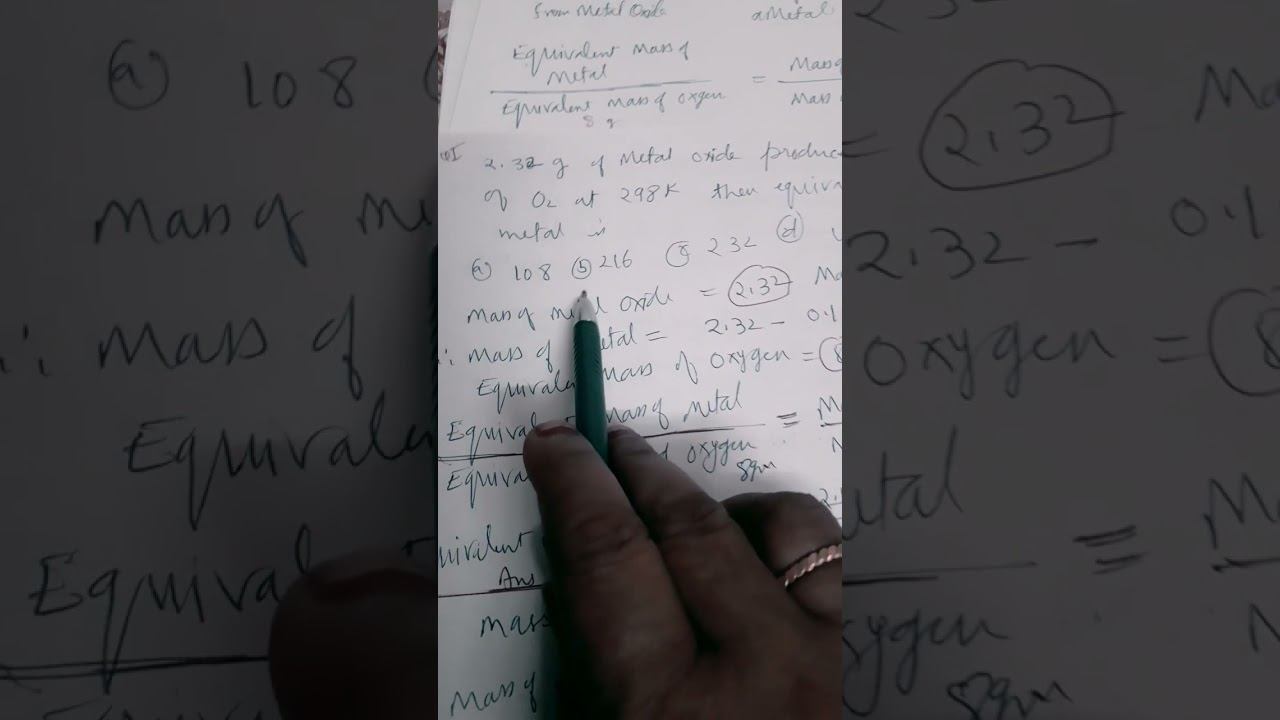 from Metal Oxide a Metal
Equivalent Mass of
Metal
Equivalent Mass of oxgen
8 g
= Mass
Mass
2.32 g of Metal oxide produc
of O2 at 298K then equiva
metal is
(a) 108 (b) 216 232 (d)
Mass of metal oxide = 2.32
∴ Mass of metal = 2.32 - 0.1
Equivalent mass of oxygen = 8
Equival Mass of Metal = M
Equiva of oxygen
8gm
quivalent
Ans
Mass
Mass of